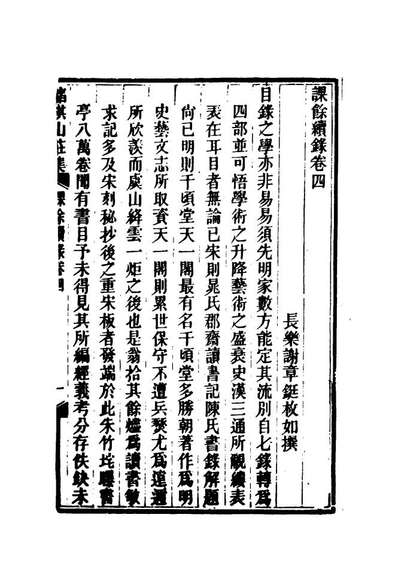 課餘續錄卷四
長樂謝章鋌枚如撰
目錄之學亦非易易須先明家數方能定其流別自七錄轉爲
四部並可悟學術之升降藝術之盛衰史漢三通所覼縷表
表在耳目者無論已宋則晁氏郡齋讀書記陳氏書錄解題
尙已明則千頃堂天一閣最有名千頃堂多勝朝著作爲明
史藝文志所取資天一閣則累世保守不遭兵燹尤爲遠邇
所欣羨而虞山絳雲一炬之後也是翁拾其餘燼爲讀書敏
求記多及宋刻秘抄後之重宋板者發端於此朱竹垞曝書
亭八萬卷聞有書目予未得見其所編經義考分存佚缺未
賭棋山莊集
課餘續錄卷四
一